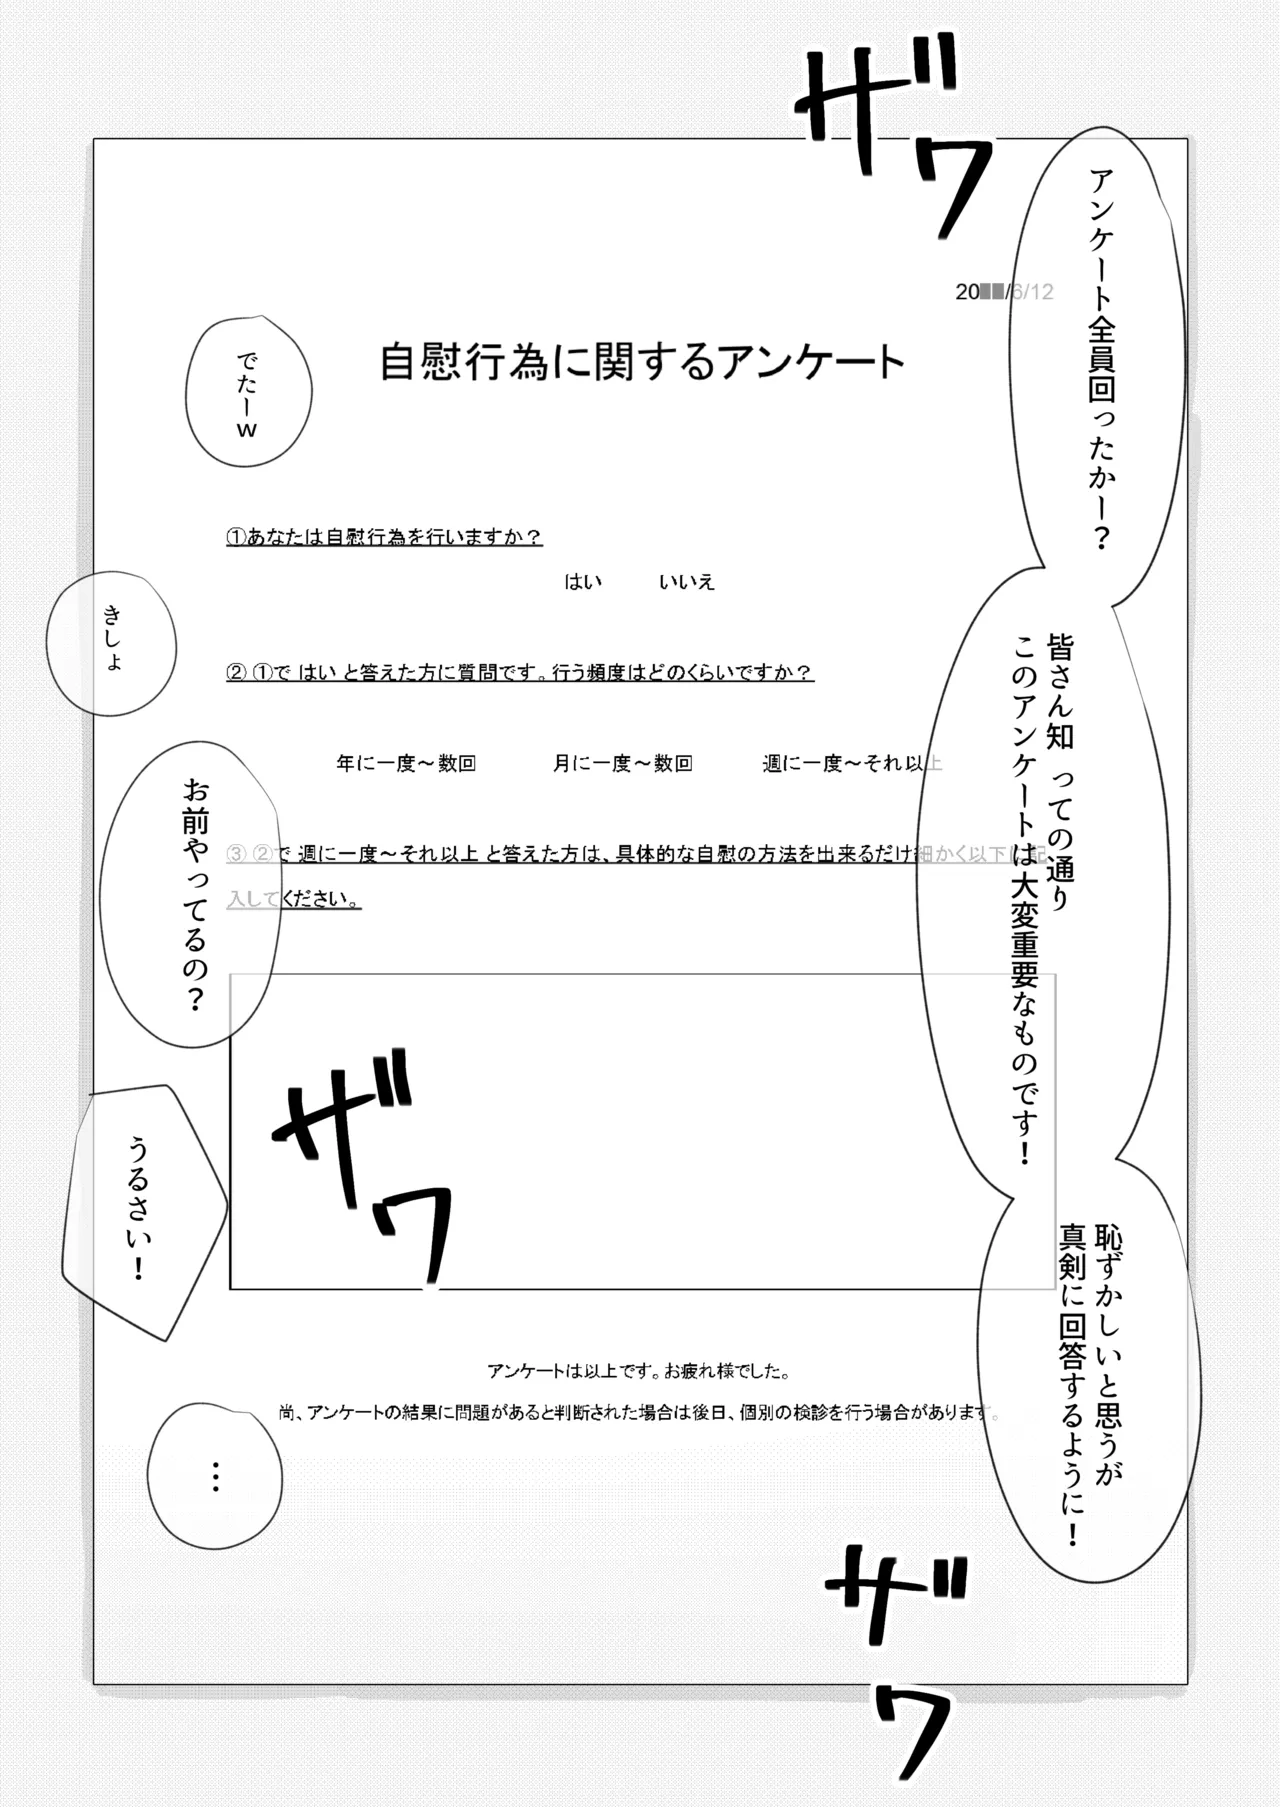 ザワ
アンケート全員回ったかー?
20██/6/12
自慰行為に関するアンケート
でたーw
①あなたは自慰行為を行いますか?
はい　いいえ
きしょ
皆さん知 っての通り
このアンケートは大変重要なものです!
②①で はい と答えた方に質問です。行う頻度はどのくらいですか?
年に一度～数回　月に一度～数回　週に一度～それ以上
お前やってるの?
③②で 週に一度～それ以上 と答えた方は、具体的な自慰の方法を出来るだけ細かく以下に記
入してください。
ザワ
うるさい!
恥ずかしいと思うが
真剣に回答するように!
アンケートは以上です。お疲れ様でした。
尚、アンケートの結果に問題があると判断された場合は後日、個別の検診を行う場合があります。
…
ザワ